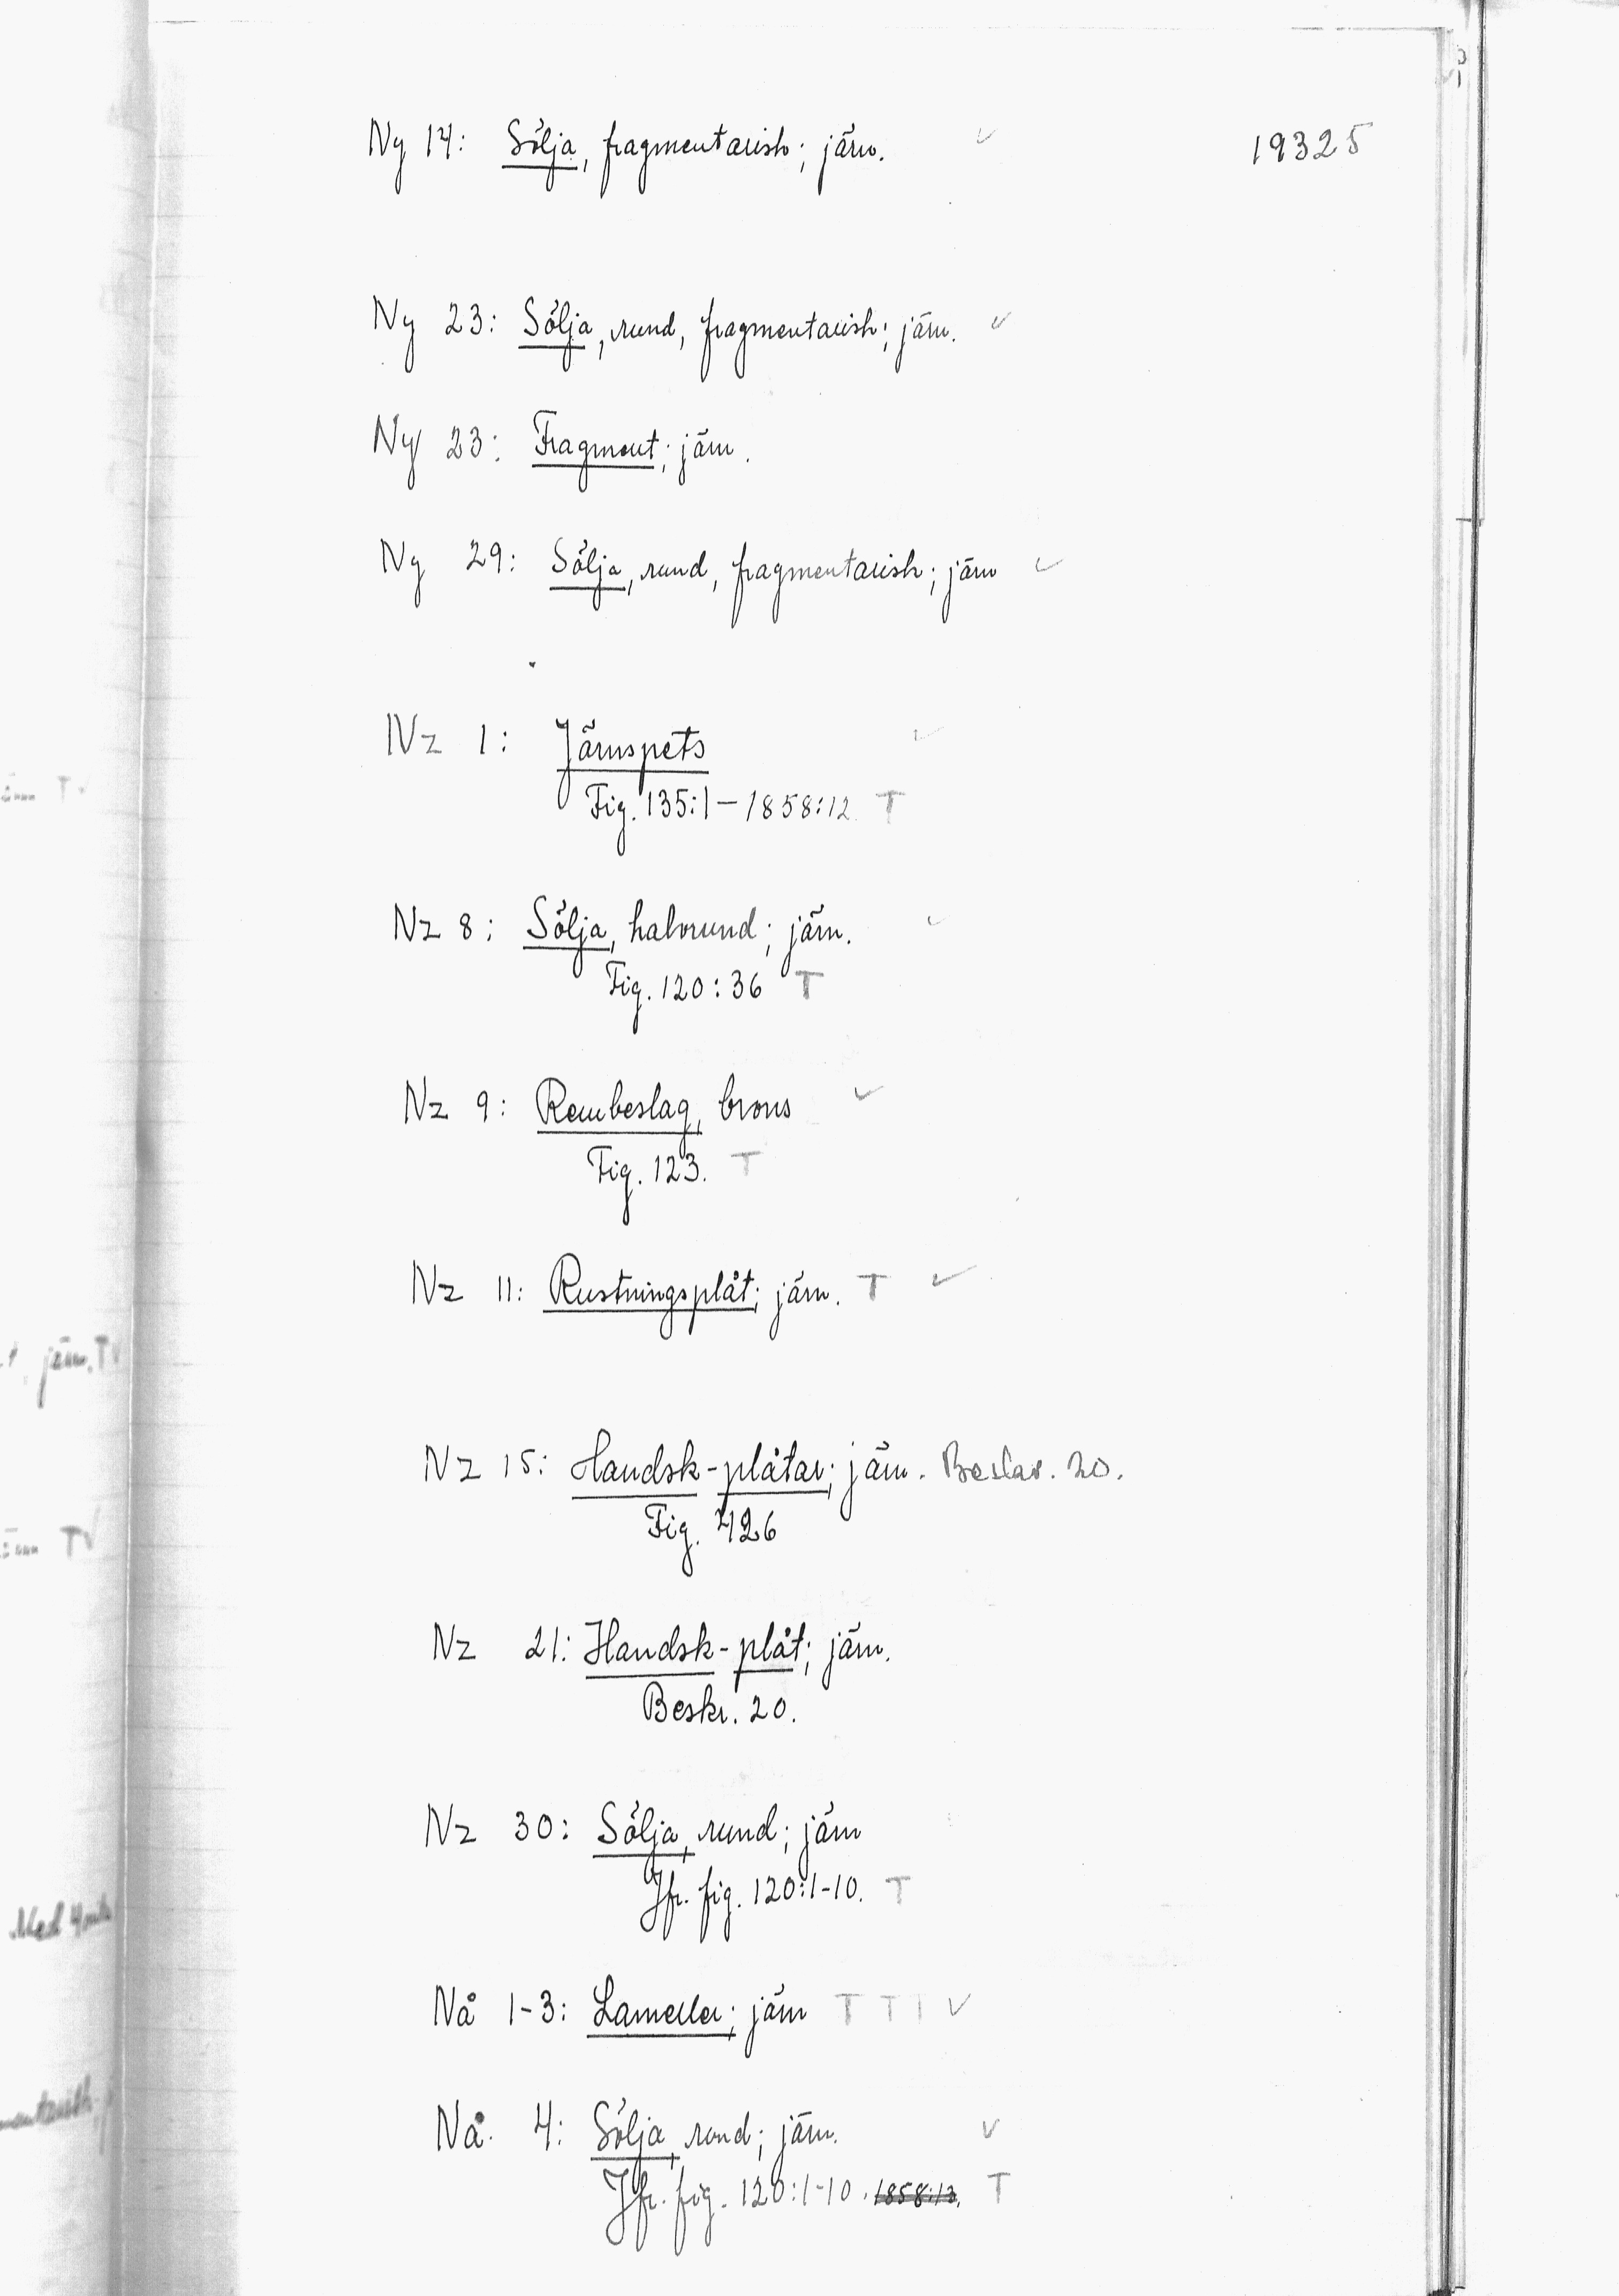 Ny 14: Sölja, fragmentarisk; järn. ✓ 19325
Ny 23: Sölja, rund, fragmentarisk; järn. ✓
Ny 23: Fragment; järn.
Ny 29: Sölja, rund, fragmentarisk; järn ✓
Nz 1: Järnspets ✓
Fig. 135:1 – 1858:12 T
Nz 8: Sölja, halvrund; järn. ✓
Fig. 120:36 T
Nz 9: Rembeslag, brons ✓
Fig. 123. T
Nz 11: Rustningsplåt; järn. T ✓
Nz 15: Handsk-plåtar; järn. Beskr. 20.
Fig. 126
Nz 21: Handsk-plåt; järn.
Beskr. 20.
Nz 30: Sölja, rund; järn
Jfr. fig. 120:1-10. T
Nå 1-3: Lameller; järn T T T ✓
Nå. 4: Sölja, rund; järn. ✓
Jfr. fig. 120:1-10. 1858:12. T
järn. T ✓
Med